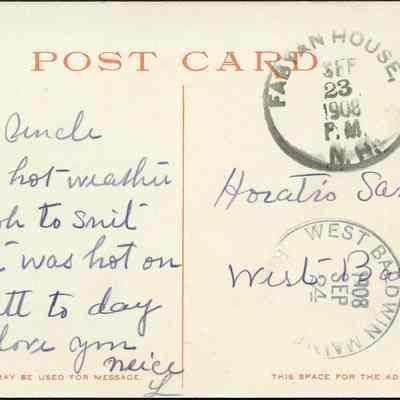 POST CARD
Uncle
hot weather
to suit
was hot on
to day
love you
neice
L
MAY BE USED FOR MESSAGE.
FABYAN HOUSE,
SEP
23
1908
P.M.
N.H.
Horatio Sa
West Ba
WEST BALDWIN MAINE
1908
SEP
24
THIS SPACE FOR THE AD